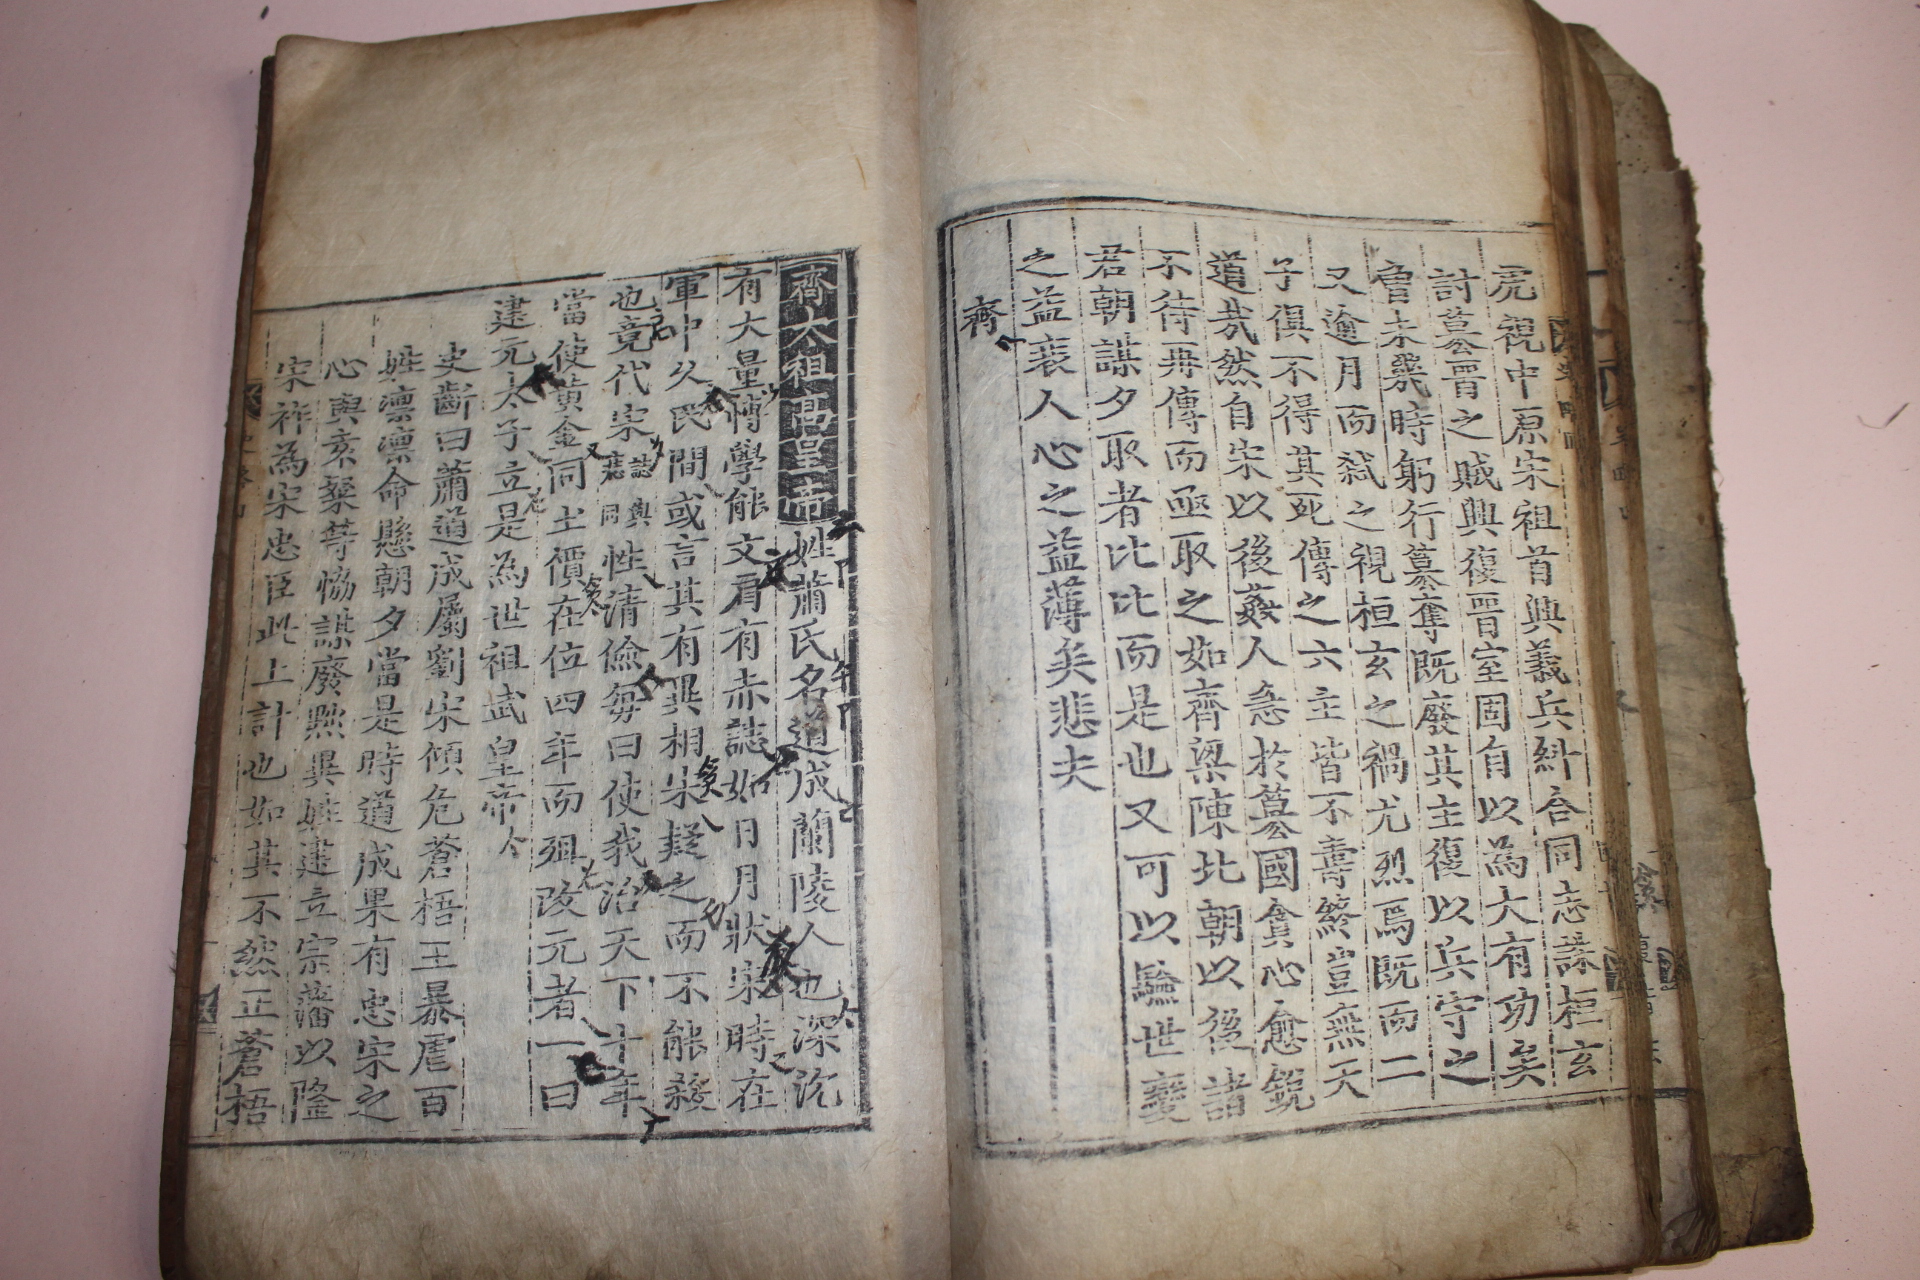 虎視中原宋祖首興義兵糾合同志誅桓玄
討簒晋之賊興復晋室固自以為大有功矣
曾未幾時躬行簒奪既廢其主復以兵守之
又逾月而弑之視桓玄之禍尤烈焉既而二
子俱不得其死傳之六主皆不壽終豈無天
道哉然自宋以後姦人急於簒國貪心愈銳
不待再傳而亟取之如齊梁陳北朝以後諸
君朝謀夕取者比比而是也又可以驗世變
之益衰人心之益薄矣悲夫
齊
齊太祖高皇帝姓蕭氏名道成蘭陵人也深沉
有大量博學能文肩有赤誌如日月狀宋時在
軍中久民間或言其有異相宋疑之而不能殺
也竟代宋誌與痣同性清儉每曰使我治天下十年
當使黄金同土價在位四年而殂改元者一曰
建元太子立是為世祖武皇帝
史斷曰蕭道成屬劉宋傾危蒼梧王暴虐百
姓凛凛命懸朝夕當是時道成果有忠宋之
心與袁粲等恊謀廢㷋異姓建立宗藩以隆
宋祚為宋忠臣此上計也如其不然正蒼梧